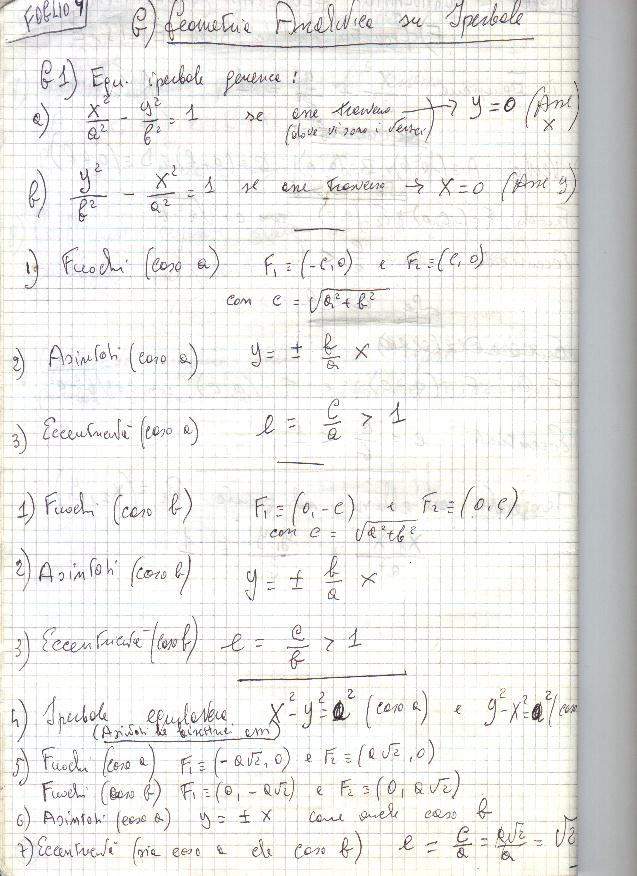 FOGLIO 4
G) Geometria Analitica su Iperbole
G1) Equ. iperbole generica:
a) x²/a² - y²/b² = 1 se asse trasverso → y=0 (Asse x)
(dove vi sono i vertici)
b) y²/b² - x²/a² = 1 se asse trasverso → x=0 (Asse y)
1) Fuochi (caso a) F₁≡(-c,0) e F₂≡(c,0)
con c = √a²+b²
2) Asintoti (caso a) y = ± b/a x
3) Eccentricità (caso a) e = c/a > 1
1) Fuochi (caso b) F₁≡(0,-c) e F₂≡(0,c)
con c = √a²+b²
2) Asintoti (caso b) y = ± b/a x
3) Eccentricità (caso b) e = c/b > 1
4) Iperbole equilatera x²-y²=a² (caso a) e y²-x²=a² (caso
(Asintoti le bisettrici assi)
5) Fuochi (caso a) F₁≡(-a√2,0) e F₂≡(a√2,0)
Fuochi (caso b) F₁≡(0,-a√2) e F₂≡(0,a√2)
6) Asintoti (caso a) y = ± x come anche caso b
7) Eccentricità (sia caso a che caso b) e = c/a = a√2/a = √2